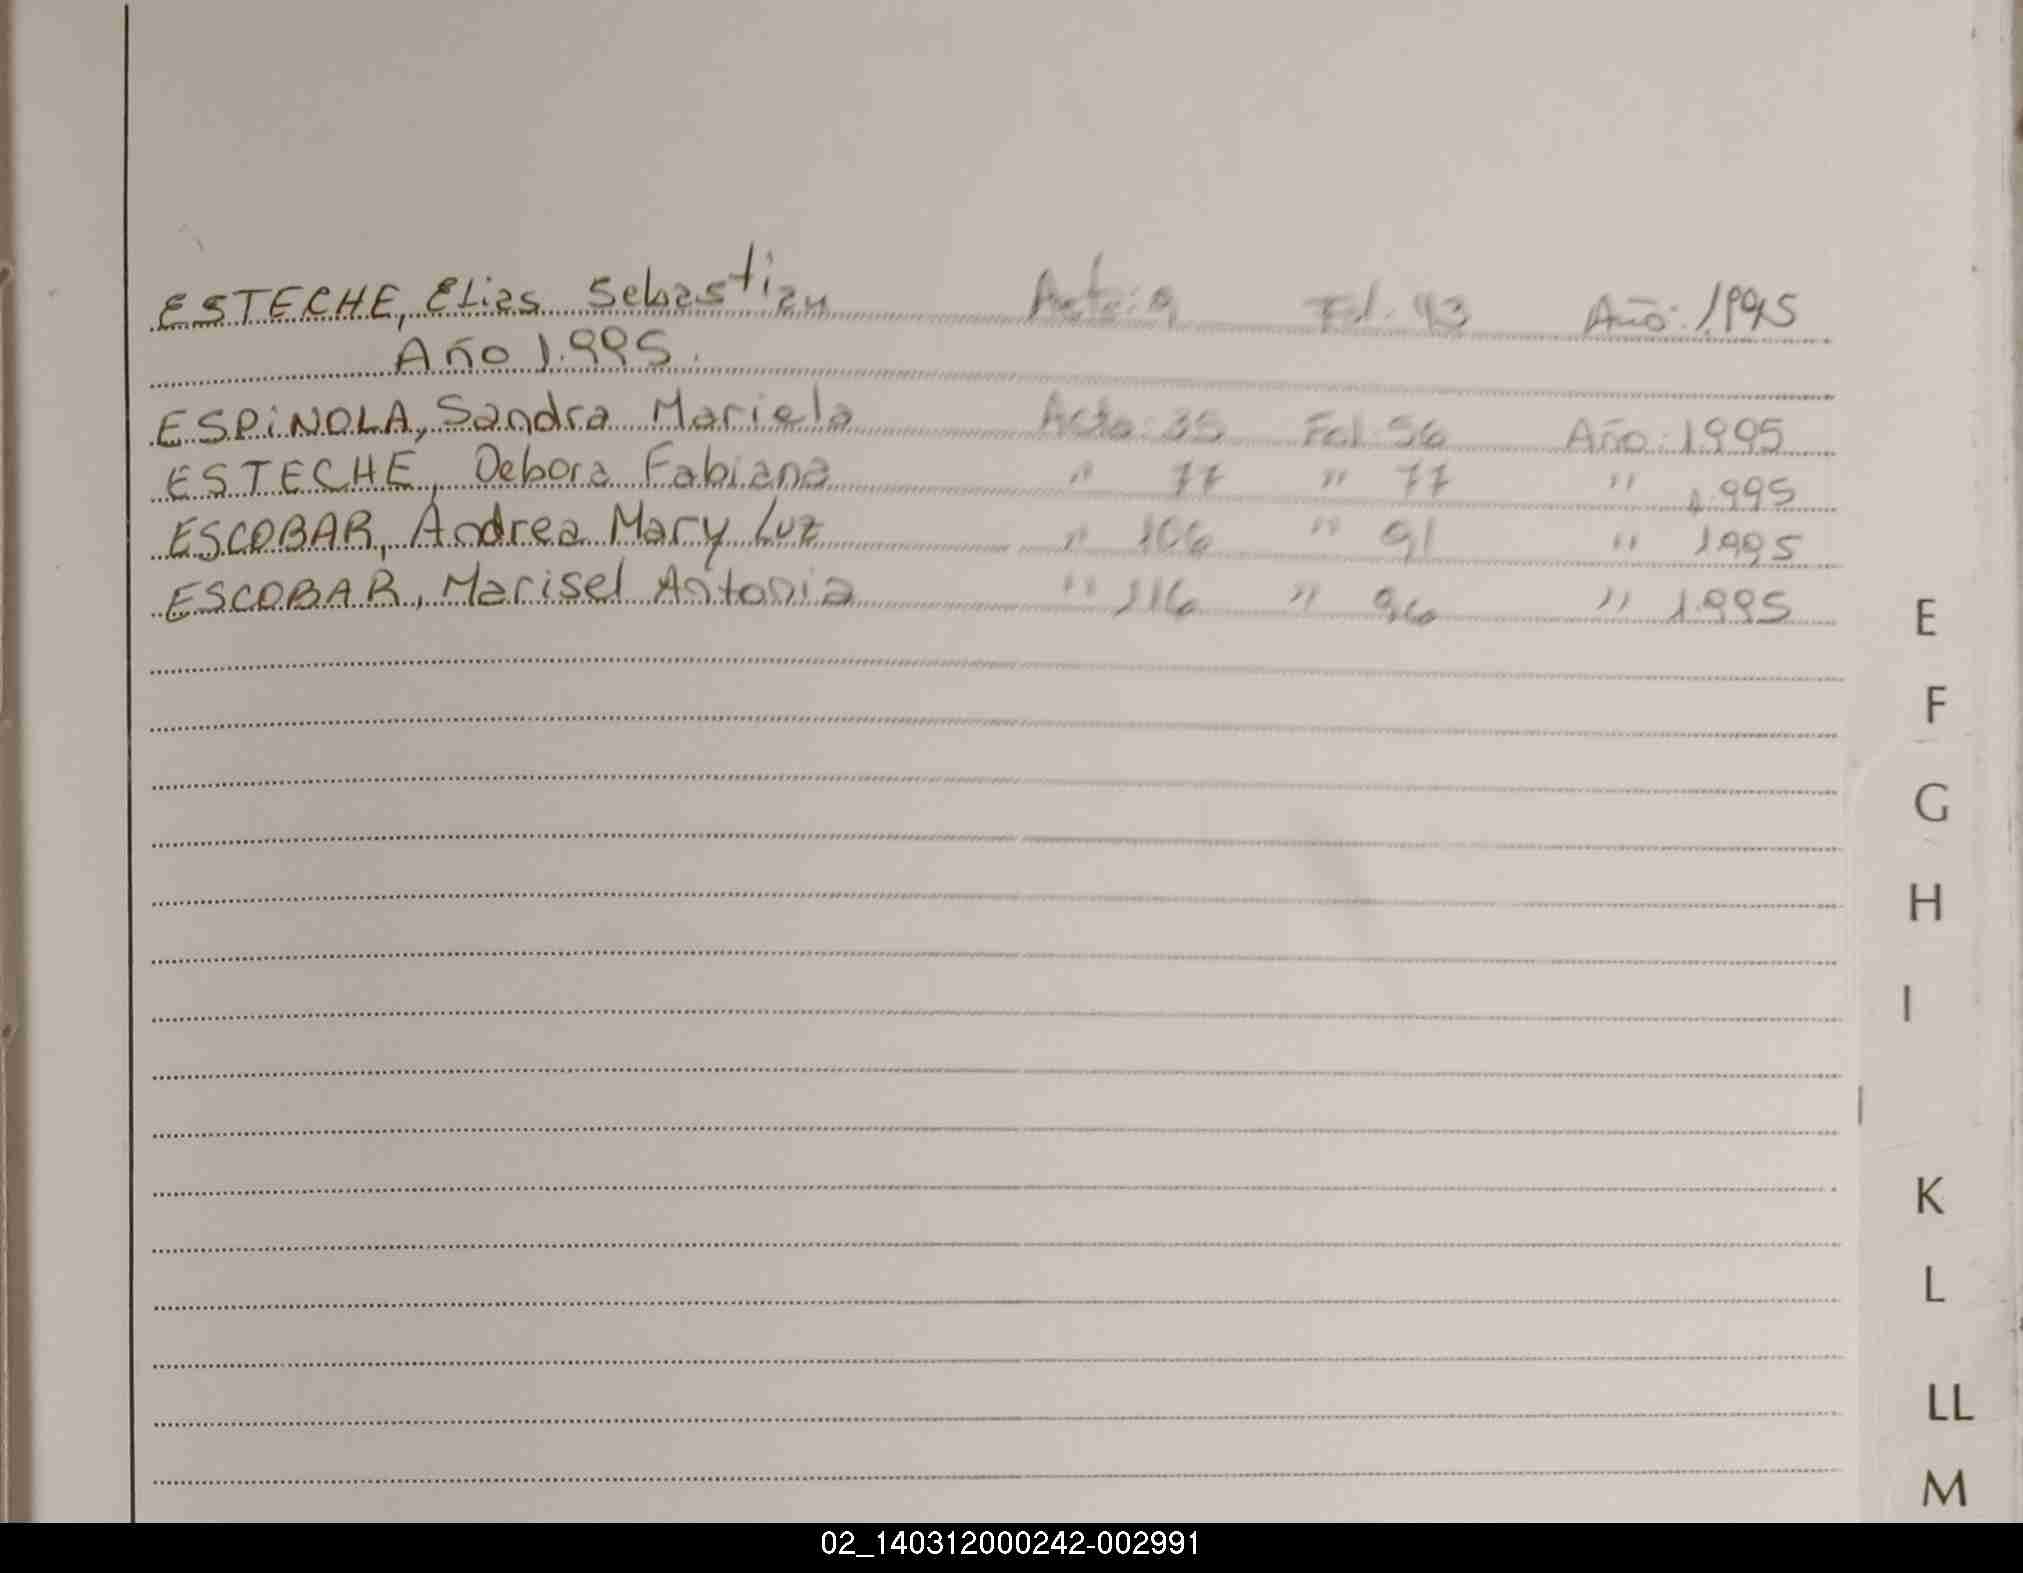 ESTECHE, Elias Sebastian Acta: 9 Fol. 43 Año: 1995
Año 1.995.
ESPiNOLA, Sandra Mariela Acta: 35 Fol: 56 Año: 1.995
ESTECHE, Debora Fabiana " 77 " 77 " 1.995
ESCOBAR, Andrea Mary Luz " 106 " 91 " 1995
ESCOBAR, Marisel Antonia " 116 " 96 " 1.995
E
F
G
H
I
K
L
LL
M
02_140312000242-002991